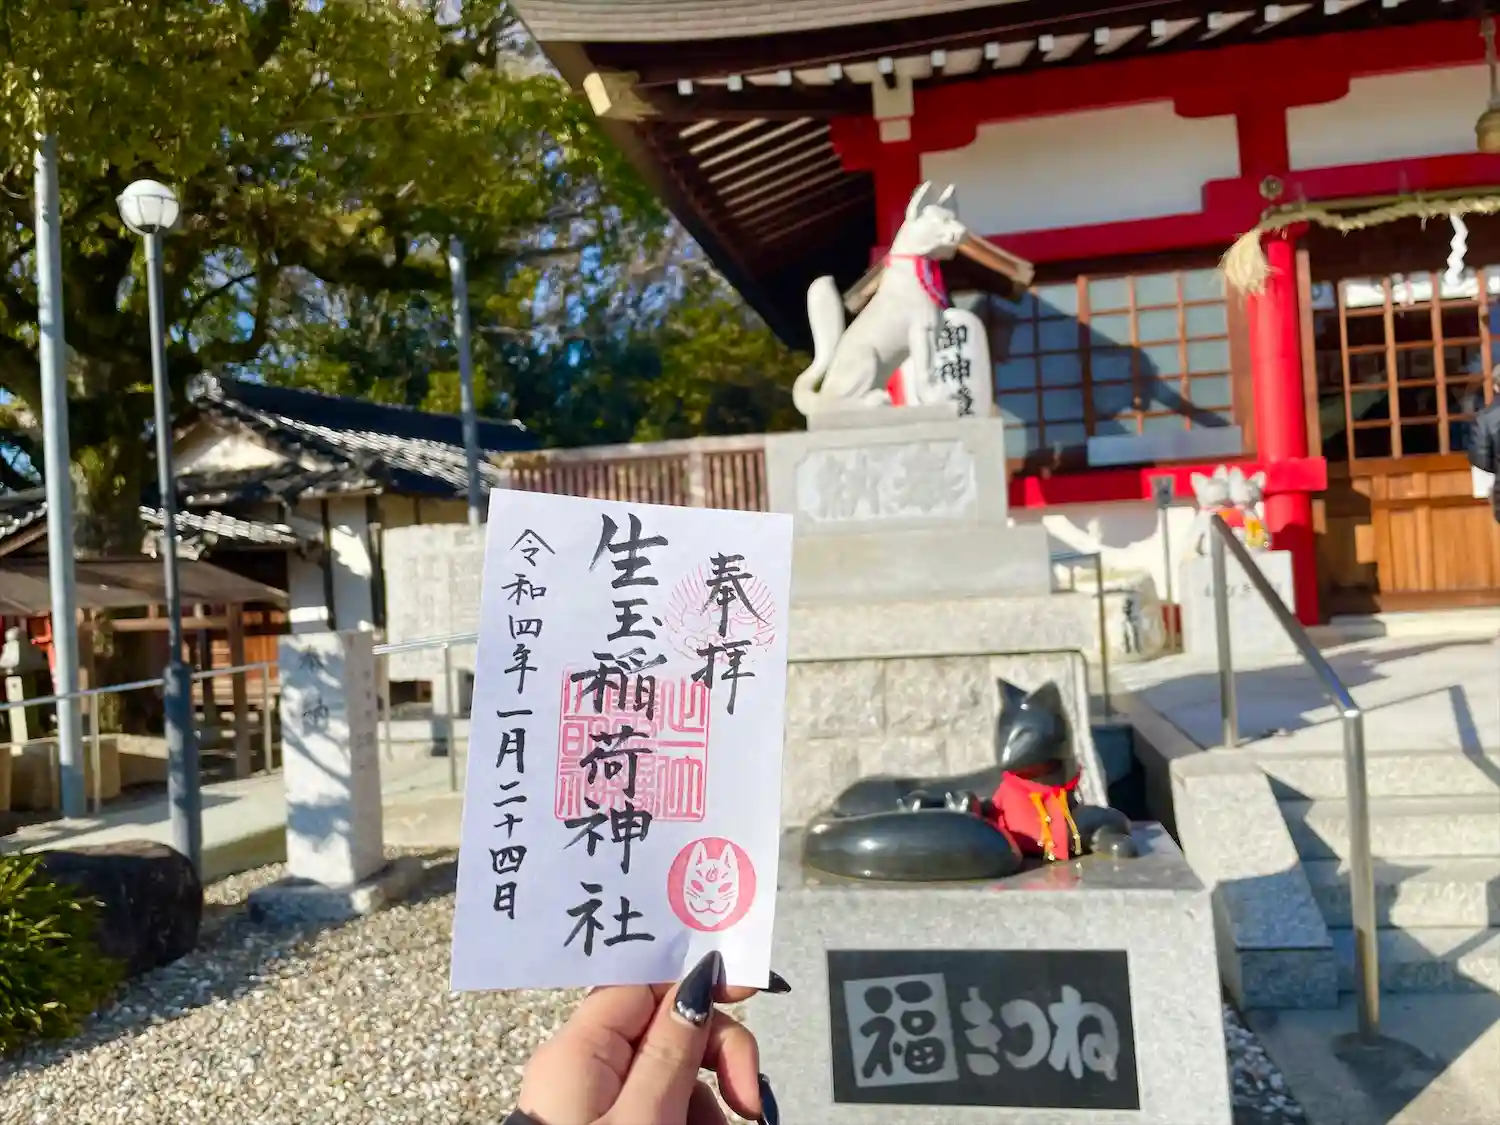 奉拝
生玉稲荷神社
令和四年一月二十四日
御神
福きつね